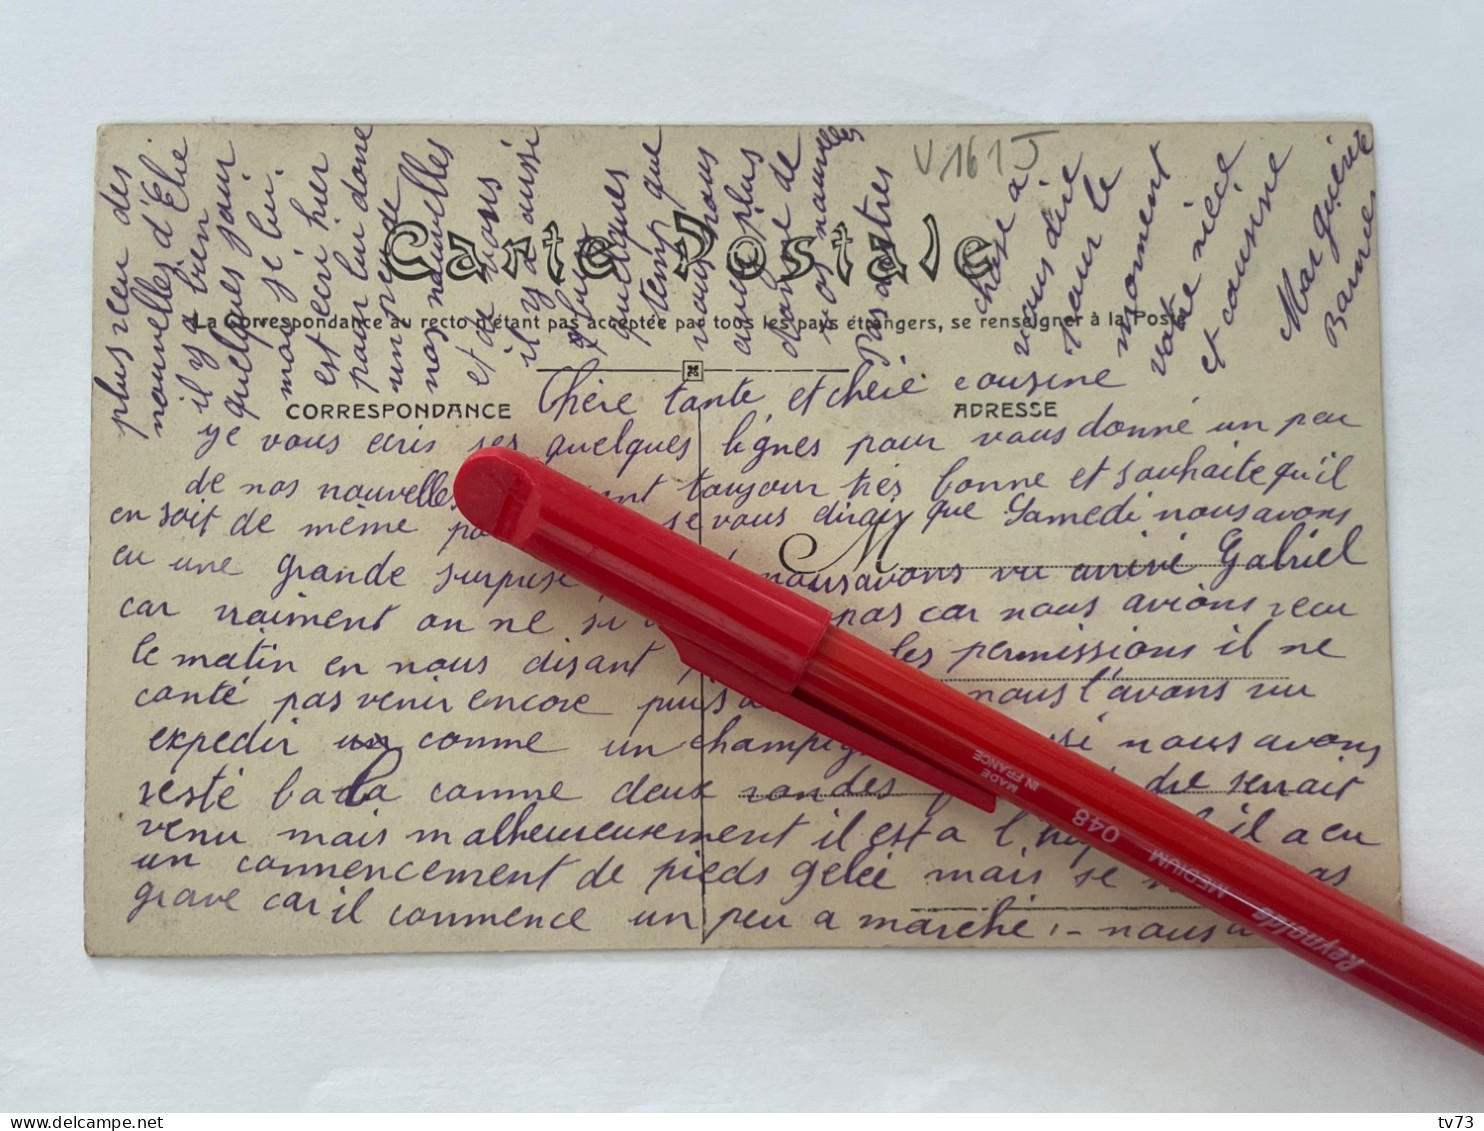 V161J
Carte Postale
La Correspondance au recto n'étant pas acceptée par tous les pays étrangers, se renseigner à la Poste
CORRESPONDANCE
ADRESSE
Chère tante, et chère cousine
ye vous ecris ses quelques lignes pour vous donné un peu
de nos nouvelles toujour très bonne et souhaite qu'il
en soit de même se vous dirais que Samedi nous avons
eu une grande surprise nous avons vu arrivé Gabriel
car vraiment on ne pas car nous avions recu
le matin en nous disant les permissions il ne
conté pas venir encore nous l'avons vu
expedir comme un nous avons
resté baba comme deux rondes serrait
venu mais malheureusement il est a il a eu
un commencement de pieds gelée mais se
grave car il commence un peu a marché :- nous
plus recu des
nouvelles d'Elie
il y a bien
quelques jour
mais je lui
est ecri hier
pour lui done
un peu de
nos nouvelles
et de vous
il y a aussi
quelques
temp que
nous nous
avons plus
done de
vos nouvelles
Pas autres
chose a
vous dire
pour le
moment
votre nièce
et cousine
Marguerite
M
MADE
IN FRANCE
Reynolds MEDIUM 048
tv73